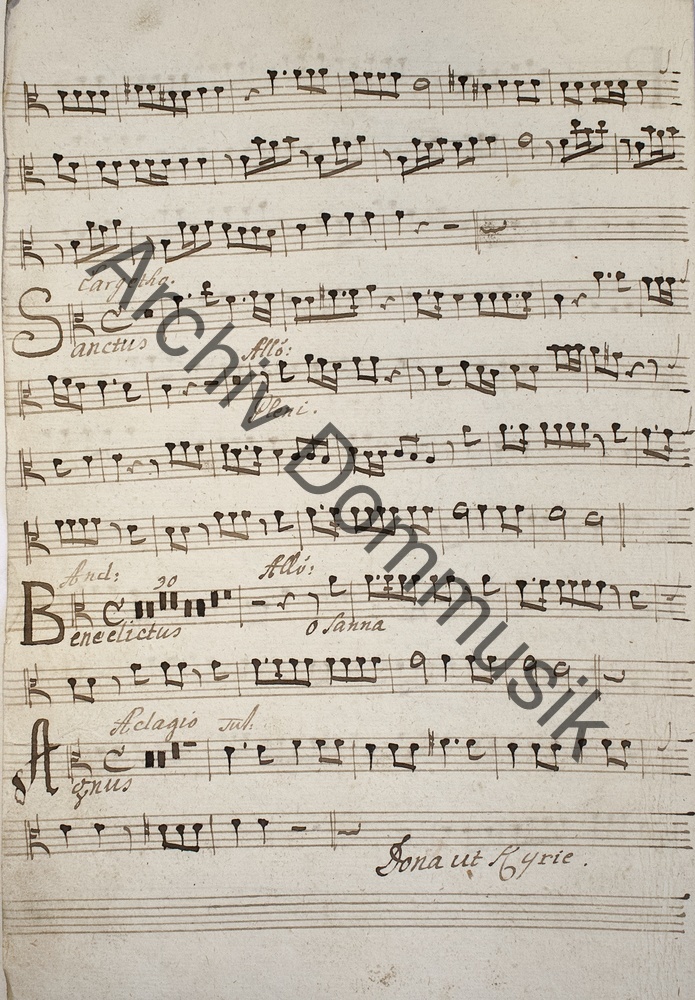 Larghetto.
Sanctus
Allo:
Pleni.
And:
30
Allo:
Benedictus
O Sanna
Adagio Tut:
Agnus
Dona ut Kyrie.
Archiv Dommusik